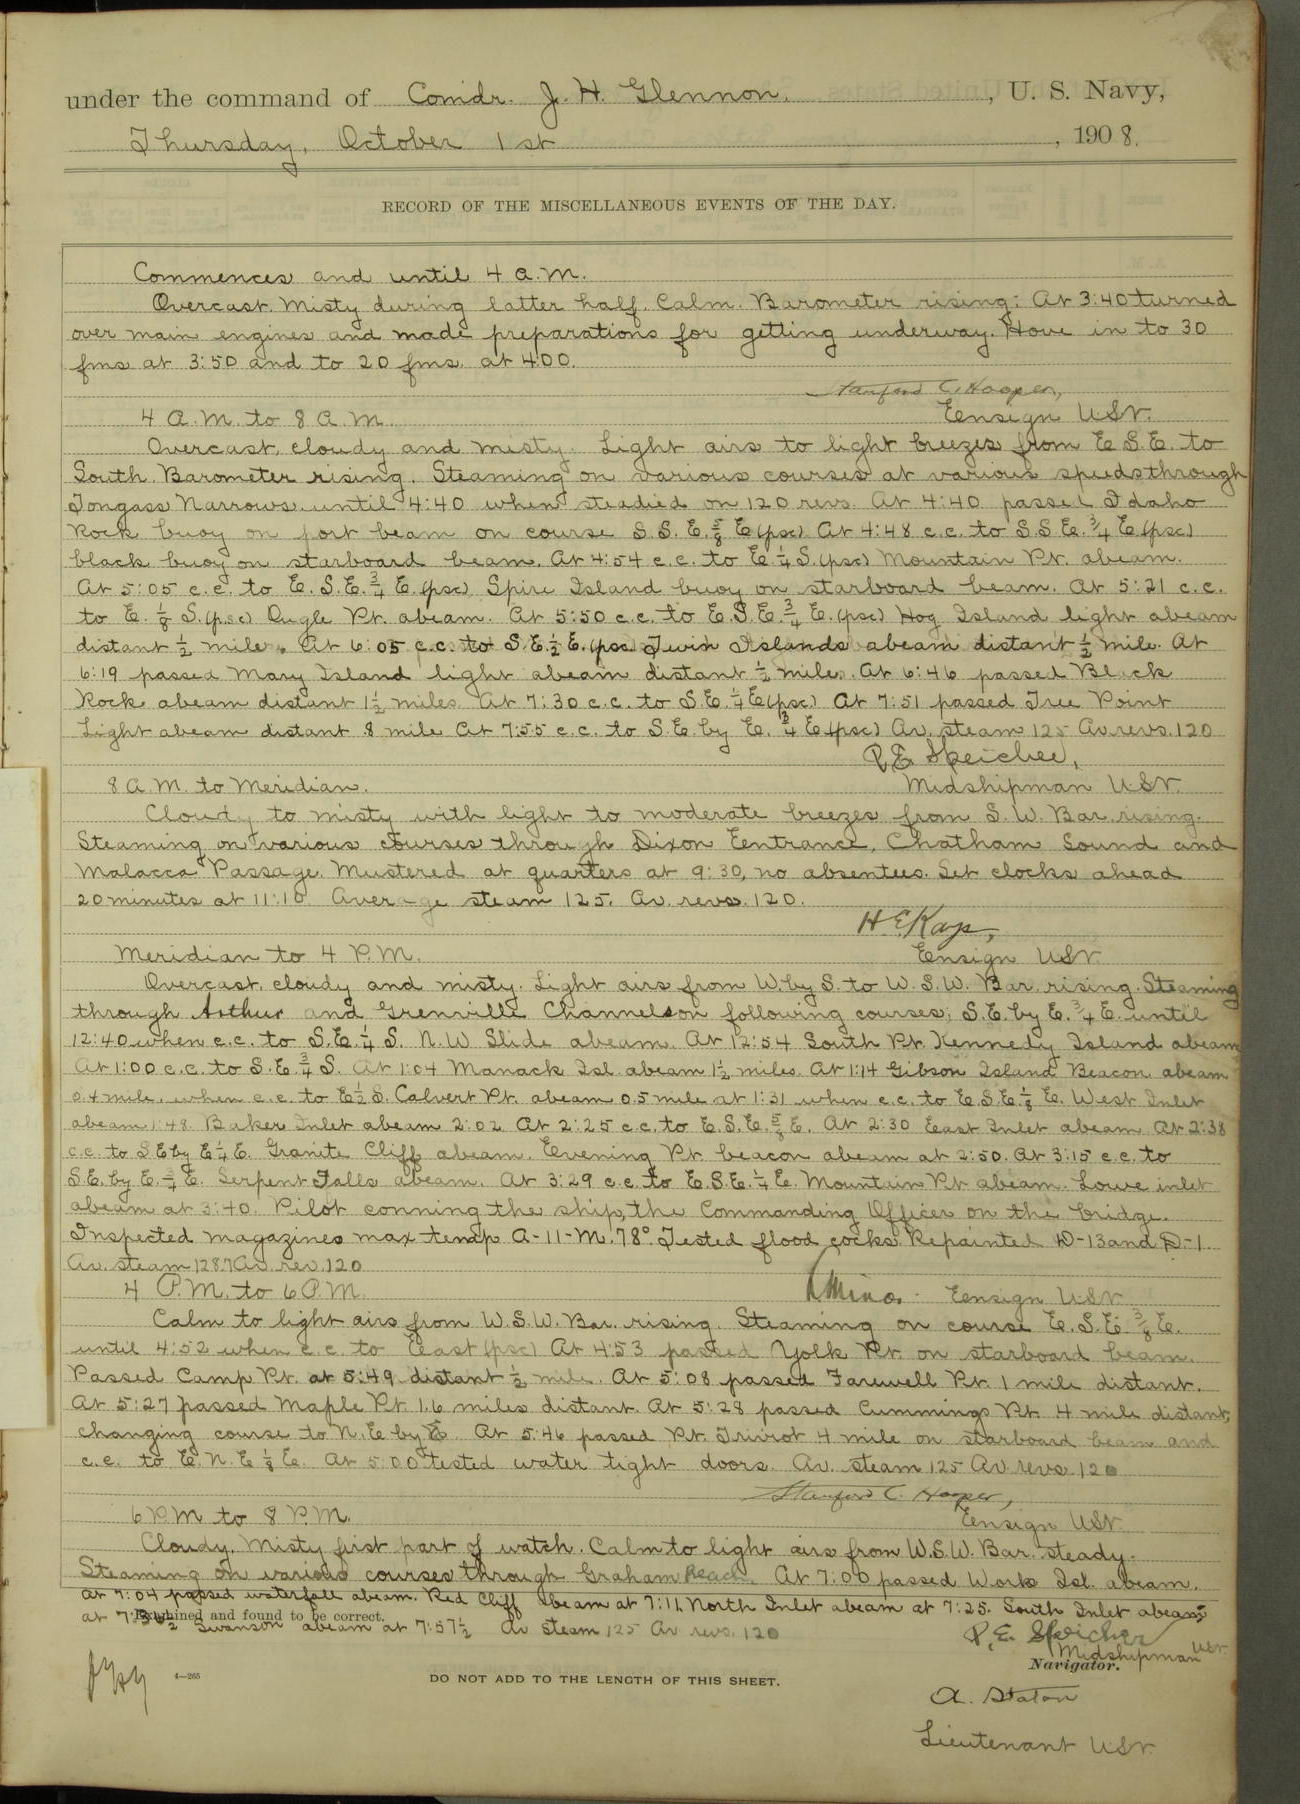 under the command of Comdr. J. H. Glennon, U. S. Navy,
Thursday, October 1st, 1908.
RECORD OF THE MISCELLANEOUS EVENTS OF THE DAY.
Commences and until 4 a.m.
Overcast. Misty during latter half. Calm. Barometer rising: At 3:40 turned
over main engines and made preparations for getting underway. Hove in to 30
fms at 3:50 and to 20 fms. at 4:00.
Stanford C. Hooper,
4 A.M. to 8 A.M. Eensign USN.
Overcast, cloudy and misty. Light airs to light breezes from E.S.E. to
South. Barometer rising. Steaming on various courses at various speeds through
Tongass Narrows until 4:40 when steadied on 120 revs. At 4:40 passed Idaho
Rock buoy on port beam on course S.S.E. 5/8 E (psc) At 4:48 c.c. to S.S.E. 3/4 E (psc)
black buoy on starboard beam. At 4:54 c.c. to E 1/4 S. (psc) Mountain Pt. abeam.
At 5:05 c.c. to E.S.E. 3/4 E. (psc) Spire Island buoy on starboard beam. At 5:21 c.c.
to E. 1/8 S. (psc) Angle Pt. abeam. At 5:50 c.c. to E.S.E. 3/4 E. (psc) Hog Island light abeam
distant 1/2 mile. At 6:05 c.c. to S.E. 1/2 E. (psc) Twin Islands abeam distant 1/2 mile. At
6:19 passed Mary Island light abeam distant 1/2 mile. At 6:46 passed Black
Rock abeam distant 1 1/2 miles At 7:30 c.c. to S.E. 1/4 E (psc) At 7:51 passed Tree Point
Light abeam distant .8 mile At 7:55 c.c. to S.E. by E. 3/4 E (psc) Av. steam 125 Av. revs. 120
P. E. Speicher,
8 A.M. to Meridian. Midshipman USN.
Cloudy to misty with light to moderate breezes from S.W. Bar. rising.
Steaming on various courses through Dixon Eentrance, Chatham Sound and
Malacca Passage. Mustered at quarters at 9:30, no absentees. Set clocks ahead
20 minutes at 11:10. Average steam 125. Av. revs. 120.
H. E. Kays,
Meridian to 4 P.M. Eensign USN.
Overcast, cloudy and misty. Light airs from W. by S. to W.S.W. Bar. rising. Steaming
through Arthur and Grenville Channels on following courses; S.E. by E. 3/4 E. until
12:40 when c.c. to S.E. 1/4 S. N.W. Slide abeam. At 12:54 South Pt. Kennedy Island abeam
At 1:00 c.c. to S.E. 3/4 S. At 1:04 Manack Isl. abeam 1 1/2 miles. At 1:14 Gibson Island Beacon abeam
0.4 mile, when c.c. to E 1/2 S. Calvert Pt. abeam 0.5 mile at 1:31 when c.c. to E.S.E 1/8 E. West Inlet
abeam 1:48. Baker Inlet abeam 2:02 At 2:25 c.c. to E.S.E. 5/8 E. At 2:30 East Inlet abeam At 2:38
c.c. to SE by E 1/4 E. Granite Cliff abeam. Evening Pt. beacon abeam at 2:50. At 3:15 c.c. to
S.E. by E. 3/4 E. Serpent Falls abeam. At 3:29 c.c. to E.S.E. 1/4 E. Mountain Pt. abeam. Lowe inlet
abeam at 3:40. Pilot conning the ship, the Commanding Officer on the bridge.
Inspected magazines max temp. A-11-M. 78°. Tested flood cocks. Repainted D-13 and D-1.
Av. steam 128.7 Av. rev. 120
4 P.M. to 6 P.M. Eensign USN
Calm to light airs from W.S.W. Bar. rising. Steaming on course E.S.E. 3/8 E.
until 4:52 when c.c. to East (psc) At 4:53 passed Yolk Pt. on starboard beam.
Passed Camp Pt. at 5:49 distant 1/2 mile. At 5:08 passed Farewell Pt. 1 mile distant.
At 5:27 passed Maple Pt. 1.6 miles distant. At 5:28 passed Cummings Pt. .4 mile distant,
changing course to N.E by E. At 5:46 passed Pt. Trivot .4 mile on starboard beam and
c.c. to E.N.E 1/8 E. At 5:00 tested water tight doors. Av. steam 125 Av. revs. 120
Stanford C. Hooper,
6 P.M. to 8 P.M. Eensign USN.
Cloudy. Misty first part of watch. Calm to light airs from W.S.W. Bar. steady.
Steaming on various courses through Graham Reach. At 7:00 passed Work Isl. abeam.
At 7:04 passed waterfall abeam. Red Cliff abeam at 7:11. North Inlet abeam at 7:25. South Inlet abeam
at 7:36 1/2 Swanson abeam at 7:57 1/2 Av steam 125 Av. revs. 120
Examined and found to be correct.
P. E. Speicher
Midshipman USN.
Navigator.
4—265
DO NOT ADD TO THE LENGTH OF THIS SHEET.
A. Staton
Lieutenant USN.